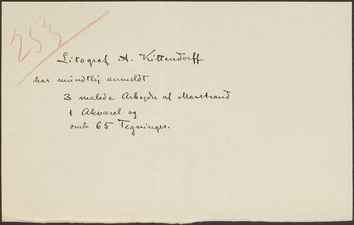 253
Litograf A. Kittendorff
har mundtlig anmeldt
3 malede Arbejder af Marstrand
1 Akvarel og
omtr 65 Tegninger.